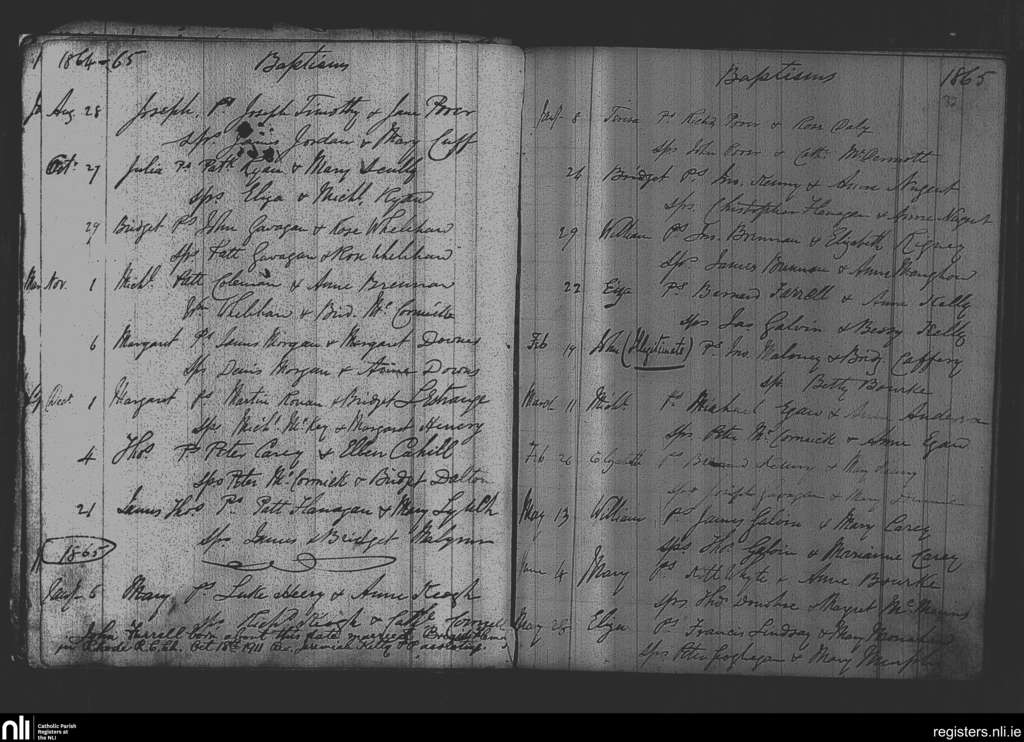 1864-65 Baptisms
Aug. 28 Joseph. Ps Joseph Timothy & Jane Power
sps. James Jordan & Mary Cuff
Octr. 27 Julia Ps Patk. Ryan & Mary Scully
sps Eliza & Michl. Ryan
29 Bridget Ps John Gavagan & Rose Whelehan
sps Patt Gavagan & Rose Whelihan
Nov. 1 Michl. Patt Coleman & Anne Brennan
Wm Whelihan & Brid. McCormick
6 Margaret Ps James Morgan & Margaret Downs
sps Denis Morgan & Anne Downs
Dect 1 Margaret Ps Martin Ronan & Bridget L'Estrange
sps Michl. McKey & Margaret Henery
4 Thos Ps Peter Carey & Ellen Cahill
sps Peter McCormick & Bridget Dalton
21 James Thos Ps. Patt Flanagan & Mary
sps James & Bridget
1865
Jany 6 Mary Ps Luke Heery & Anne Keogh
sps Keogh & Cathe
John Farrell born about this date married Bridget
in Rhode R.C.Ch. Oct 18th 1911 Rev. Jeremiah Kelly
Baptisms 1865
37
Jany 8 Teresa Ps Richd Power & Rose Daly
sps John Power & Cath. McDermott
26 Bridget Ps Jno. Kenny & Anne Nugent
sps. Christopher Flanagan & Anne Nugent
29 William Ps Jas. Brennan & Elizabeth Rigney
sps. James Brennan & Anne
22 Eliza Ps Bernard Farrell & Anne Kelly
sps Jas Galvin & Bessy Kelly
Feb 14 John (Illegitimate) Ps Jno. Maloney & Bridg Caffery
sp. Betty Bourke
March 11 Michl Ps Michael Egan & Anne Anderson
sps Peter McCormick & Anne Egan
Feb 26 Elizabeth Ps & Mary
sps Joseph Gavagan & Mary
May 13 William Ps James Galvin & Mary Carey
sps Thos Galvin & Marianne Carey
June 4 Mary Ps Patt Whyte & Anne Bourke
sps Thos & Margret McManus
May 28 Eliza Ps Francis Lindsay & Mary Monaghan
sps Peter Geoghegan & Mary Murphy
nli
Catholic Parish
Registers at
the NLI
registers.nli.ie